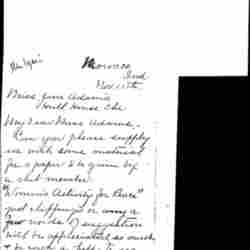 Morocco
Ind
Nov 11th
Miss Jane Adams
Hull House Chi
My dear Miss Adams.
Can you please supply
us with some material
for a paper to be given by
a club member
"Women's Activity for Peace"
just clippings or only a
few words of suggestion
will be appreciated as much